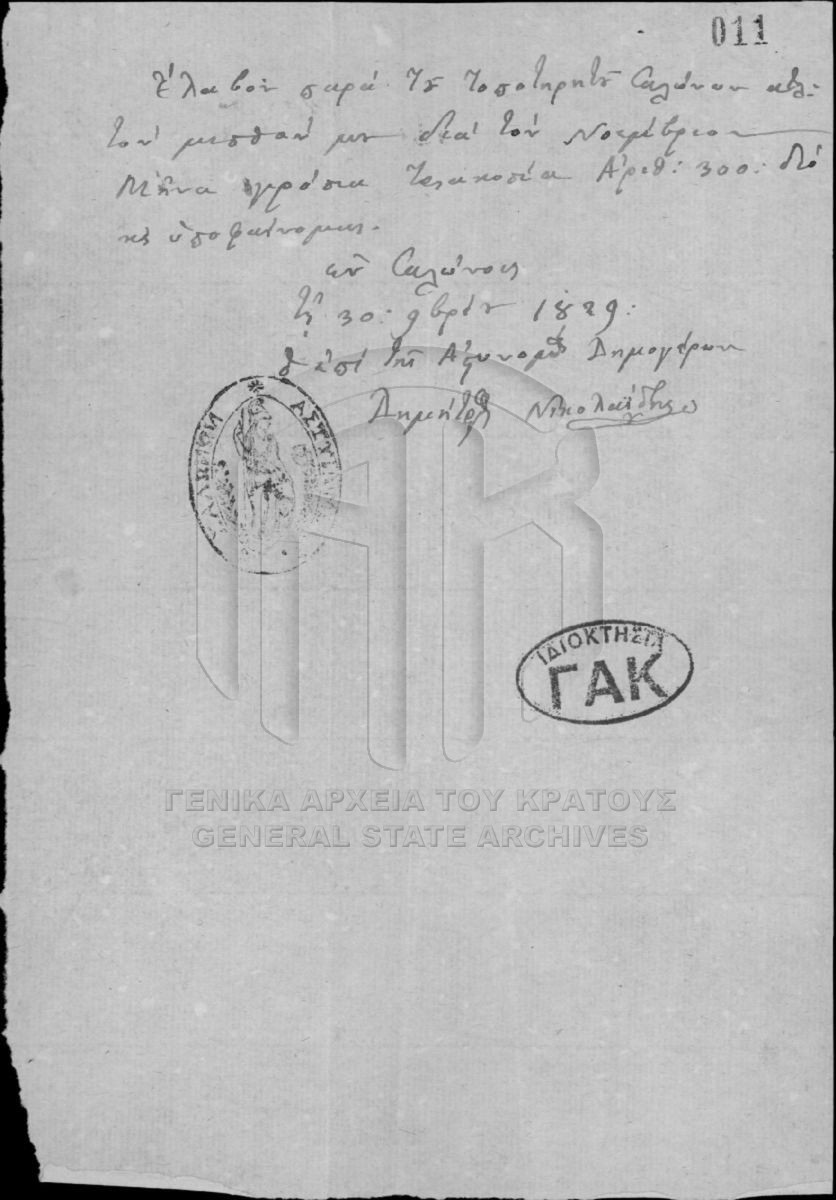 011
Ἔλαβον παρὰ τȣ̃ τοποτηρητȣ̃ Σαλώνων
τὸν μισθόν μȣ διὰ τὸν Νοέμβριον
Μῆνα γρόσια τριακοσία Ἀριθ: 300: διὸ
κ̀ ὑποφαίνομαι.
ἐν Σαλώνοις
τῇ 30: 9βρίȣ 1829:
ὁ ἐπὶ τῆς Ἀστυνομ Δημογέρων
Δημήτρ Νικολαΐδης
ΑΣΤΥΝ
ΙΔΙΟΚΤΗΣΙΑ
ΓΑΚ
ΓΕΝΙΚΑ ΑΡΧΕΙΑ ΤΟΥ ΚΡΑΤΟΥΣ
GENERAL STATE ARCHIVES